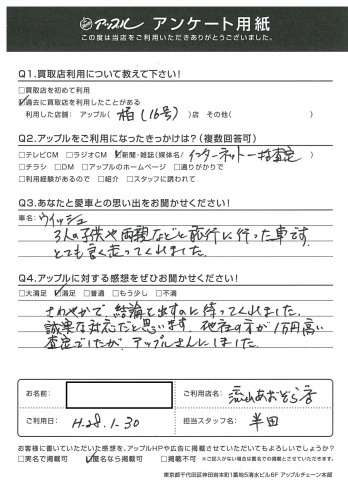 アップル アンケート用紙
この度は当店をご利用いただきありがとうございました。
Q1.買取店利用について教えて下さい!
□買取店を初めて利用
☑過去に買取店を利用したことがある
利用した店舗: アップル( 柏(16号) )店 その他( )
Q2.アップルをご利用になったきっかけは?(複数回答可)
□テレビCM □ラジオCM ☑新聞・雑誌(媒体名/ インターネット一括査定 )
□チラシ □DM □アップルのホームページ □通りがかりで
□利用経験があるので □紹介 □スタッフに誘われて
Q3.あなたと愛車との思い出をお聞かせください!
車名: ウィッシュ
3人の子供や両親などと旅行に行った車です。
とても良く走ってくれました。
Q4.アップルに対する感想をぜひお聞かせください!
□大満足 ☑満足 □普通 □もう少し □不満
さわやかで、結論を出すのに待ってくれました。
誠実な対応だと思います。他社の方が1万円高い
査定でしたが、アップルさんにしました。
お名前:
ご利用店名: 流山あおぞら店
ご利用日: H.28.1.30
担当スタッフ名: 半田
お客様に書いていただいた感想を、アップルHPや広告に掲載させていただいてもよろしいでしょうか?
□実名で掲載可 ☑匿名なら掲載可 □掲載不可 ※ご記入がない場合は匿名での掲載とさせていただきます。
東京都千代田区神田岩本町1番地5清水ビル5F アップルチェーン本部